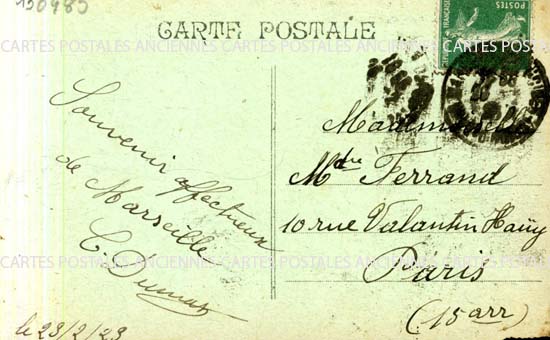 130985
CARTE POSTALE
POSTES
Souvenir affectueux
de Marseille
C. Dumas
le 23/2/23
Mademoiselle
Mdre Ferrand
10 rue Valantin Haüy
Paris
(15 arr)
CARTES POSTALES ANCIENNES CARTES POSTALES ANCIENNES CARTES POS
CARTES POSTALES ANCIENNES CARTES POSTALES ANCIENNES CARTES POS